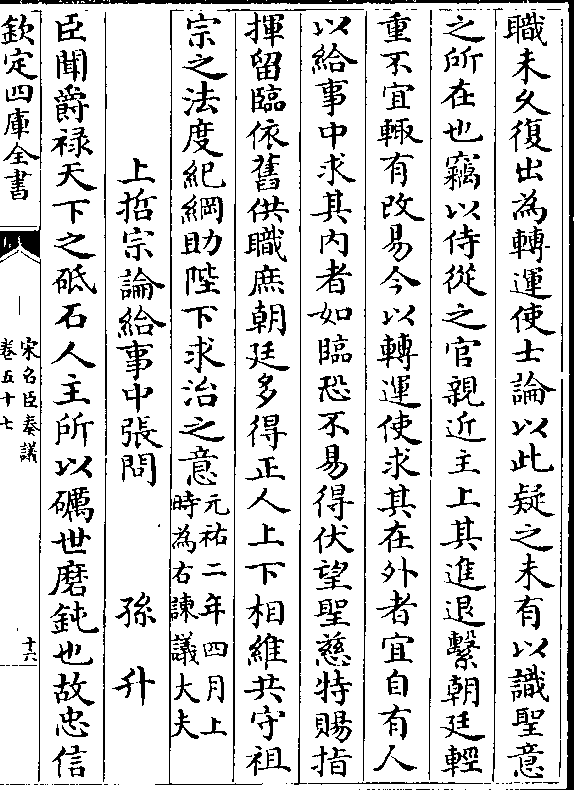 職未久復出為轉運使士論以此疑之未有以識聖意
之所在也竊以侍從之官親近主上其進退繫朝廷輕
重不宜輙有改易今以轉運使求其在外者宜自有人
以給事中求其内者如臨恐不易得伏望聖慈特賜指
揮留臨依舊供職庶朝廷多得正人上下相維共守祖
宗之法度紀綱助陛下求治之意元祐二年四月上
時為右諫議大夫
上哲宗論給事中張問　孫升
臣聞爵禄天下之砥石人主所以礪世磨鈍也故忠信
欽定四庫全書
宋名臣奏議
卷五十七
十六